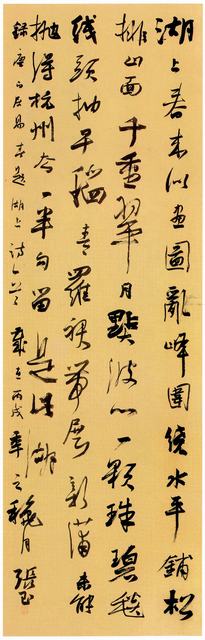 湖上春来似画圖亂峰圍绕水平鋪松
排山面千重翠月點波心一顆珠碧毯
线頭抽早稻青羅裙带展新蒲未能
抛得杭州去一半勾留是此湖
錄唐白居易春题湖上诗一首 歲在丙戌季之